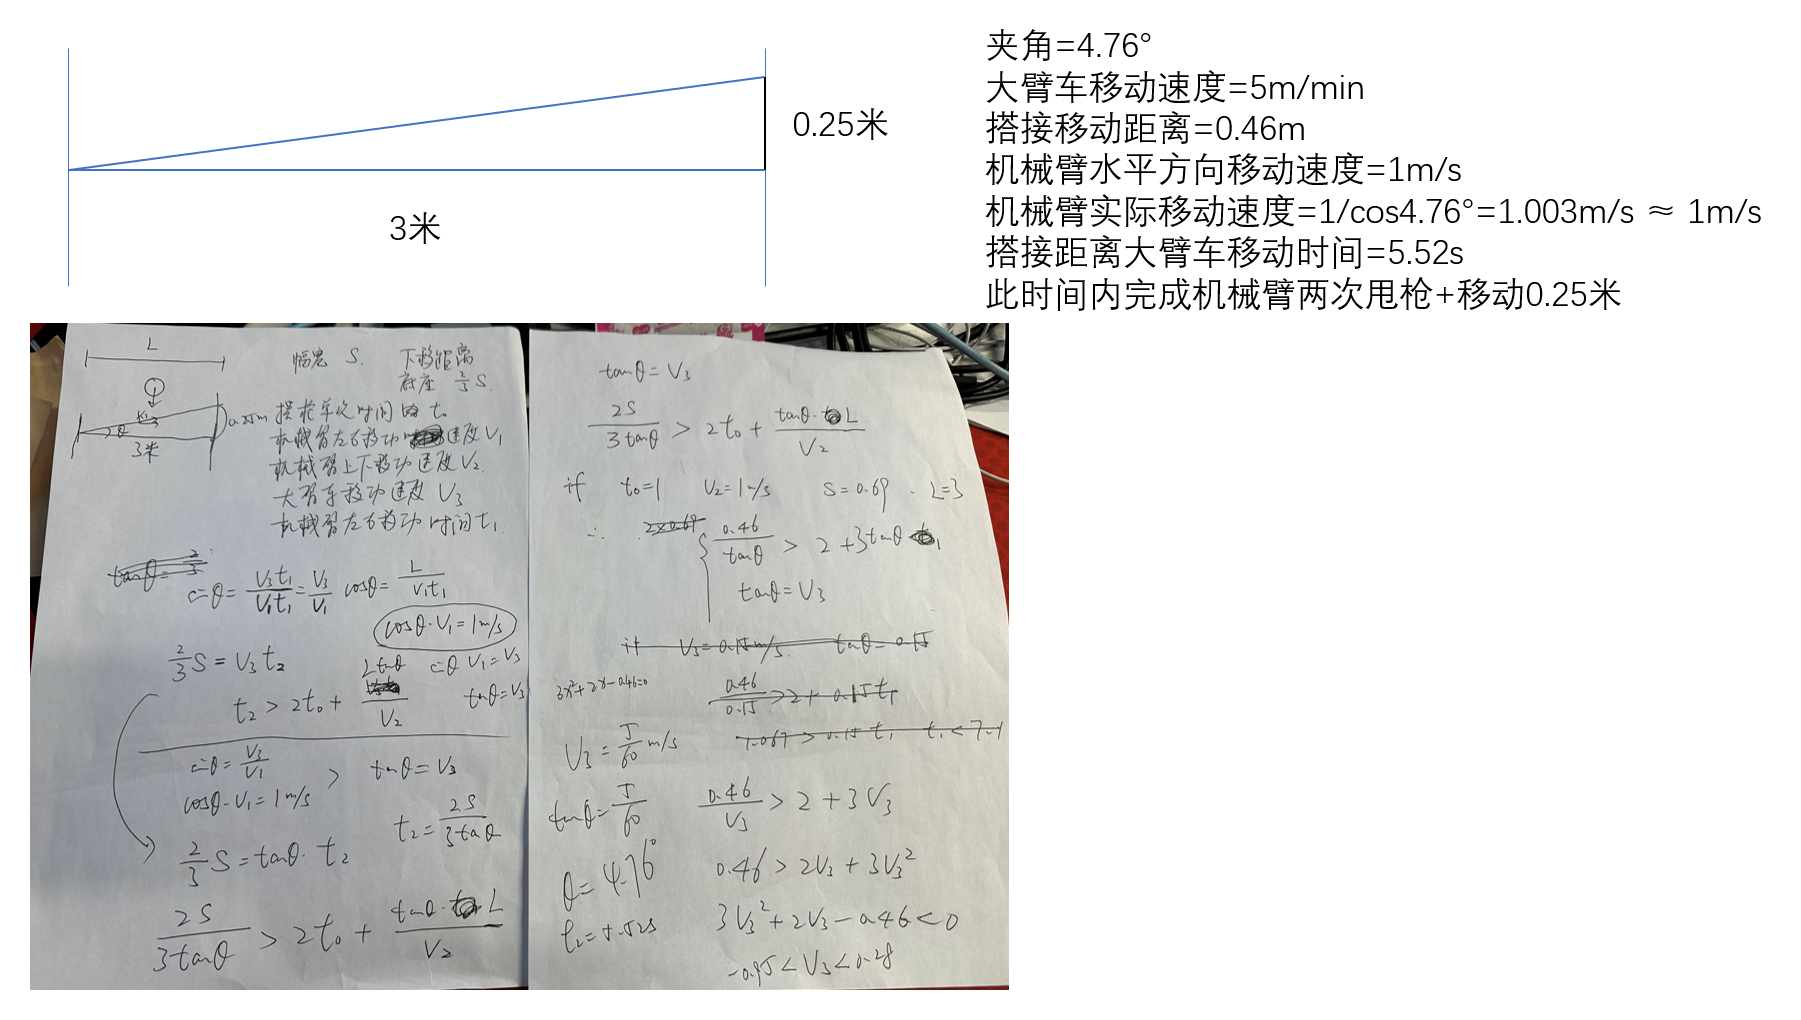 0.25米
3米
夹角=4.76°
大臂车移动速度=5m/min
搭接移动距离=0.46m
机械臂水平方向移动速度=1m/s
机械臂实际移动速度=1/cos4.76°=1.003m/s ≈ 1m/s
搭接距离大臂车移动时间=5.52s
此时间内完成机械臂两次甩枪+移动0.25米
L
幅宽 S. 下移距离
2/3 S.
0.25m
θ
3米
单次时间 t₀
机械臂左右移动 速度 V₁
机械臂上下移动速度 V₂
大臂车移动速度 V₃
机械臂左右移动时间 t₁
θ = V₃t₁/V₁t₁ = V₃/V₁ cosθ = L/V₁t₁
cosθ·V₁=1m/s
2/3 S = V₃t₂
θ V₁=V₃
t₂ > 2t₀ + Ltanθ/V₂
tanθ=V₃
θ = V₃/V₁
cosθ·V₁=1m/s
tanθ = V₃
t₂ = 2S/3tanθ
2/3 S = tanθ· t₂
2S/3tanθ > 2t₀ + tanθ· L/V₂
tanθ = V₃
2S/3tanθ > 2t₀ + tanθ· L/V₂
if t₀=1 V₂=1m/s S=0.69 . L=3
∴ 0.46/tanθ > 2+3tanθ
tanθ = V₃
if V₃=0.15m/s. tanθ=0.15
3x²+2x-0.46=0
0.46/0.15 > 2 + 0.15t₁
1.067 > 0.15 t₁ t₁<7.1
V₃ = 5/60 m/s
tanθ = 5/60
0.46/V₃ > 2 + 3V₃
θ = 4.76°
0.46 > 2V₃ + 3V₃²
t₂=5.52s
3V₃² + 2V₃ - 0.46 < 0
-0.95 < V₃ < 0.28